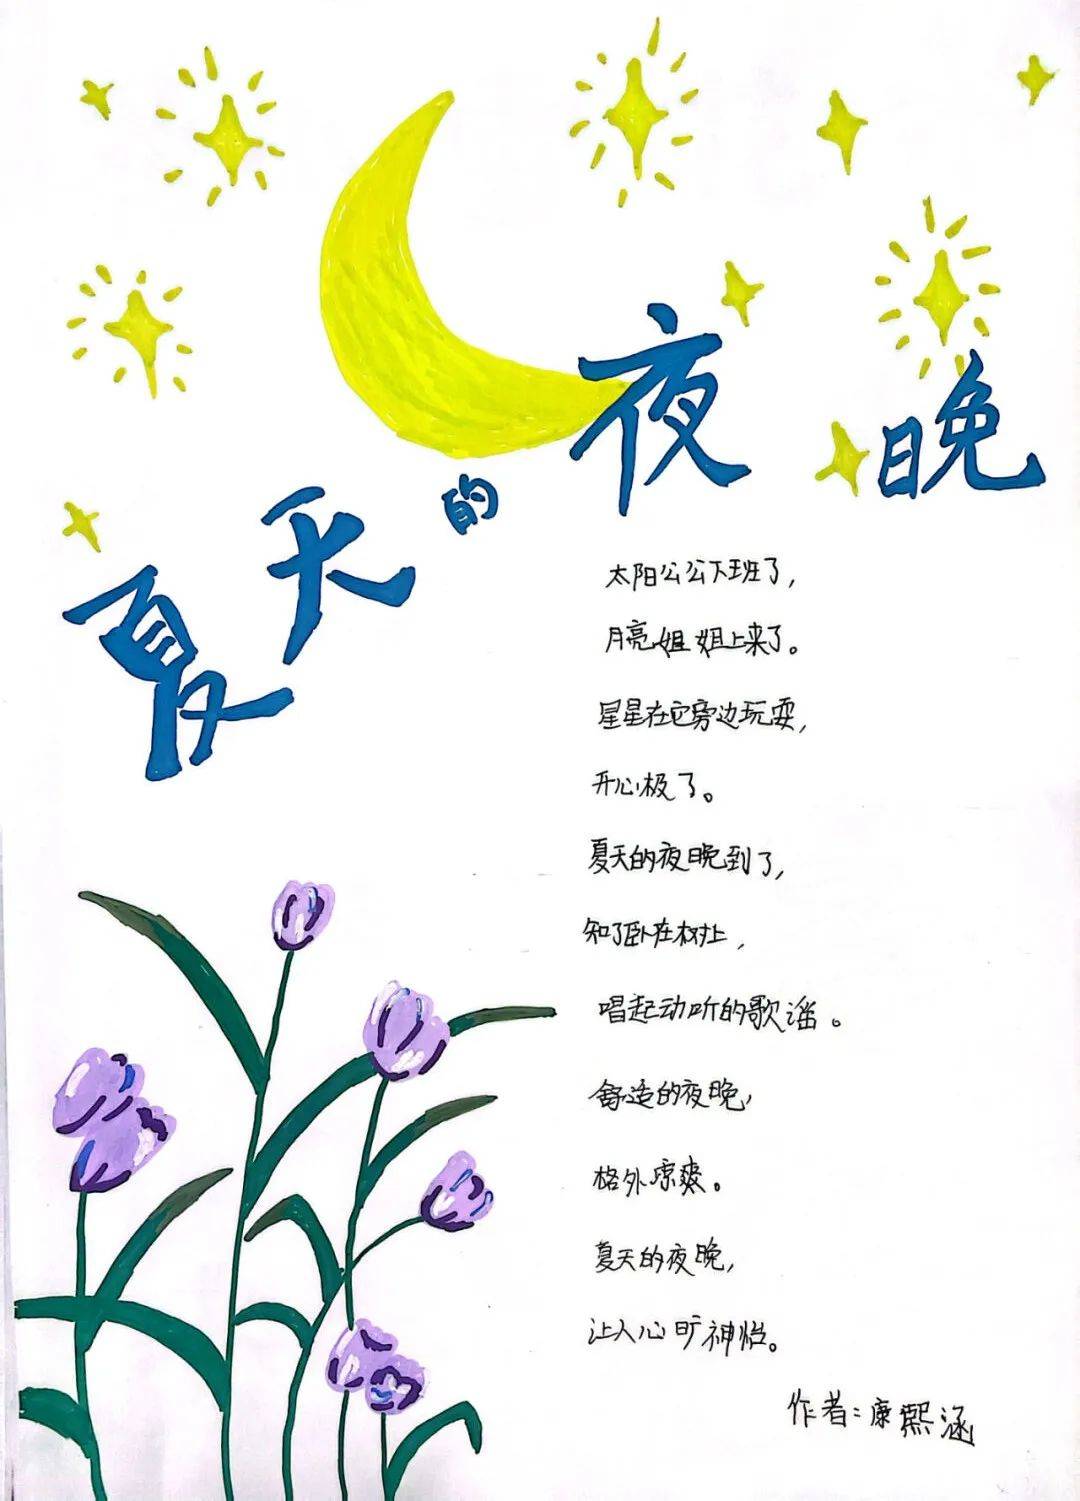 夏天的夜晚
太阳公公下班了，
月亮姐姐上来了。
星星在它旁边玩耍，
开心极了。
夏天的夜晚到了，
知了卧在树上，
唱起动听的歌谣。
舒适的夜晚，
格外凉爽。
夏天的夜晚，
让人心旷神怡。
作者：康熙涵